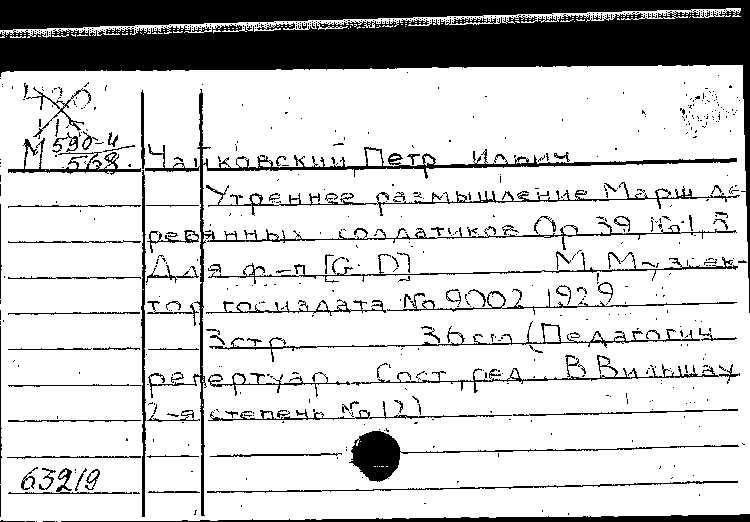 420.
М 590-4
568.
Чайковский, Петр Ильич
Утреннее размышление Марш де-
ревянных солдатиков Op 39, № 1, 5
Для ф.-п. [G, D] М, Музсек-
тор госиздата № 9002, 1929.
3стр. 36 cm (Педагогич
репертуар... Сост., ред... В Вильшау
2-я степень № 12)
63219